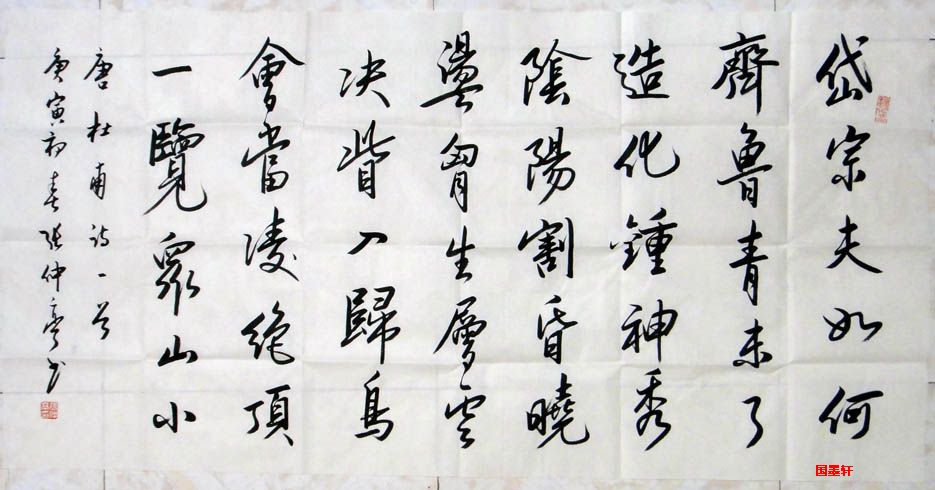 岱宗夫如何
齊魯青未了
造化鍾神秀
陰陽割昏曉
盪胷生層雲
决眥入歸鳥
會當凌絶頂
一覽眾山小
唐杜甫詩一首
庚寅初春張仲亭书
国墨轩